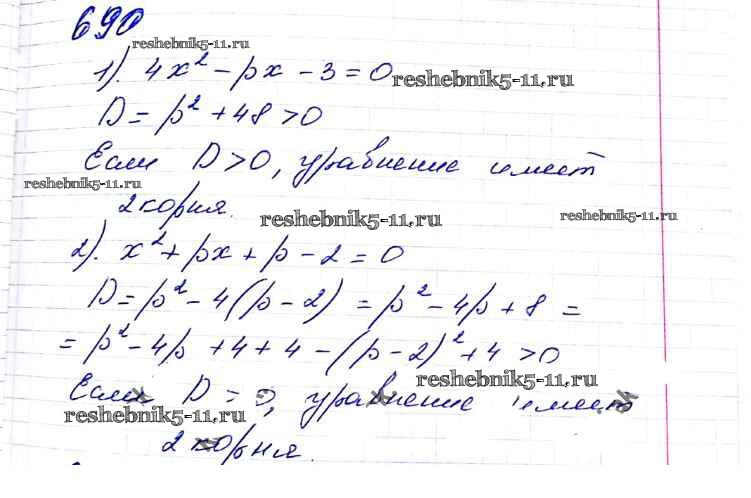 690
reshebnik5-11.ru
1). 4x² - px - 3 = 0 reshebnik5-11.ru
D = p² + 48 > 0
Если D > 0, уравнение имеет
reshebnik5-11.ru
2 корня. reshebnik5-11.ru reshebnik5-11.ru
2). x² + px + p - 2 = 0
D = p² - 4(p - 2) = p² - 4p + 8 =
= p² - 4p + 4 + 4 - (p - 2)² + 4 > 0
reshebnik5-11.ru
Если D = 0, уравнение имеет
reshebnik5-11.ru
2 корня.